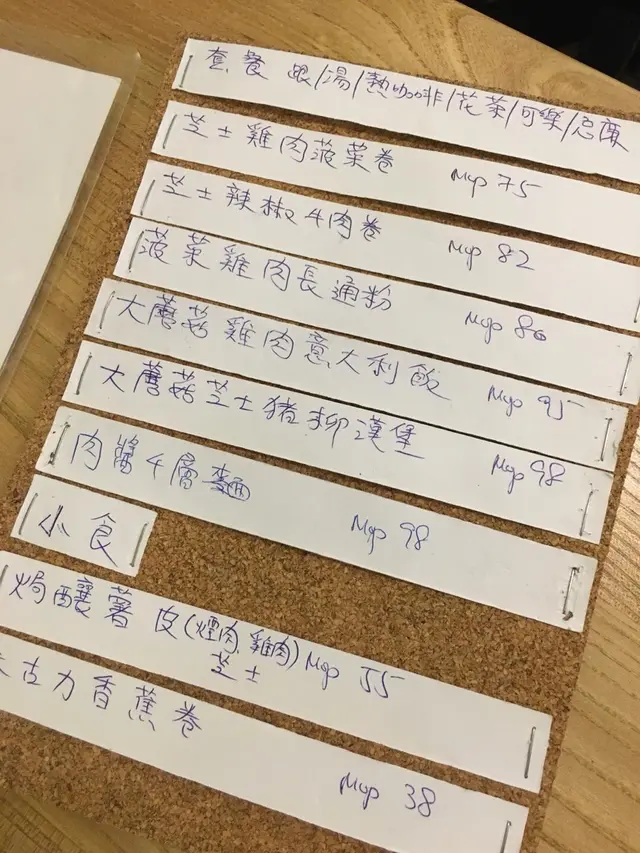 套餐 跟/湯/熱咖啡/花茶/可樂/忌廉
芝士雞肉菠菜卷 Mop 75
芝士辣椒牛肉卷 Mop 82
菠菜雞肉長通粉 Mop 80
大蘑菇雞肉意大利飯 Mop 95
大蘑菇芝士猪柳漢堡 Mop 98
肉醬4層麵 Mop 98
小食
焗釀薯皮(煙肉,雞肉) Mop 55
芝士
古力香蕉卷 Mop 38